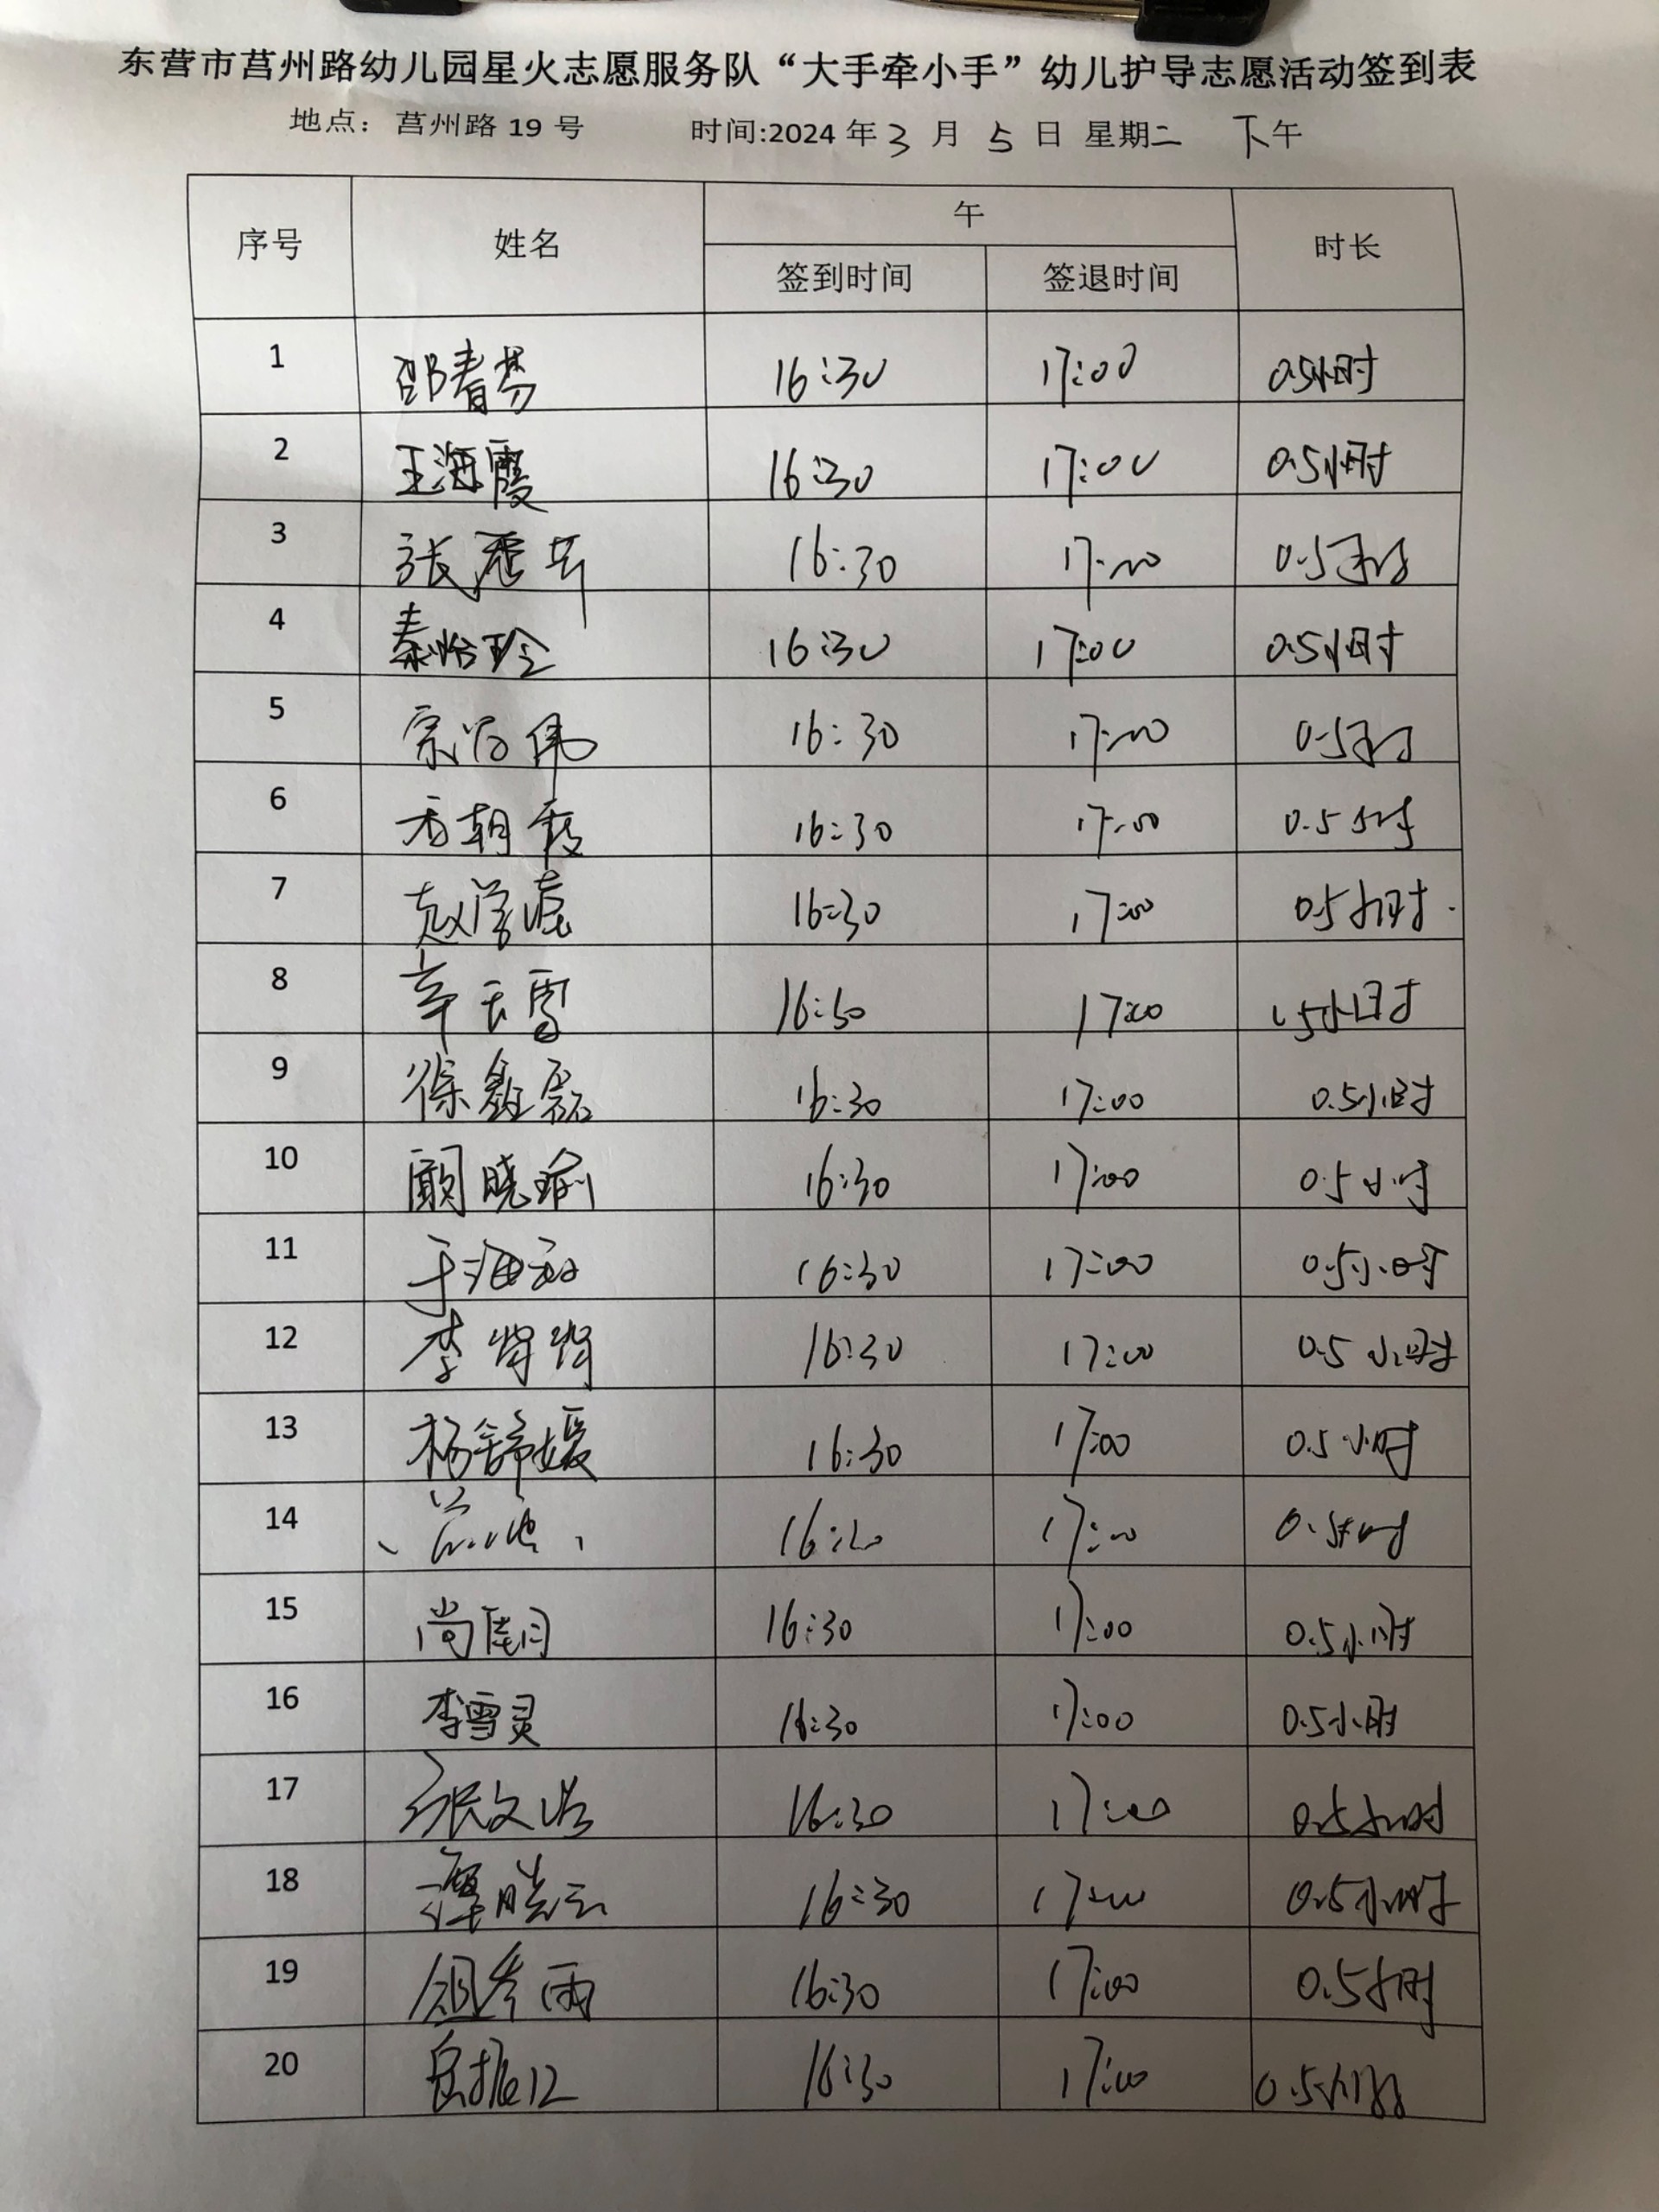 东营市莒州路幼儿园星火志愿服务队“大手牵小手”幼儿护导志愿活动签到表
地点：莒州路 19 号 时间:2024 年 3 月 5 日 星期二 下午
序号 姓名 午 时长
签到时间 签退时间
1 邵春芬 16:30 17:00 0.5小时
2 王海霞 16:30 17:00 0.5小时
3 张秀兵 16:30 17:00 0.5小时
4 秦怡珍 16:30 17:00 0.5小时
5 宗 伟 16:30 17:00 0.5小时
6 朝霞 16:30 17:00 0.5小时
7 赵学 16:30 17:00 0.5小时.
8 辛云雪 16:30 17:00 0.5小时
9 徐鑫磊 16:30 17:00 0.5小时
10 顾晓瑜 16:30 17:00 0.5小时
11 于海 16:30 17:00 0.5小时
12 李 16:30 17:00 0.5小时
13 杨舒媛 16:30 17:00 0.5小时
14 17:00 0.5小时
15 尚 16:30 17:00 0.5小时
16 李雪灵 16:30 17:00 0.5小时
17 张文浩 16:30 17:00 0.5小时
18 谭晓云 16:30 17:00 0.5小时
19 雨 16:30 17:00 0.5小时
20 16:30 17:00 0.5小时